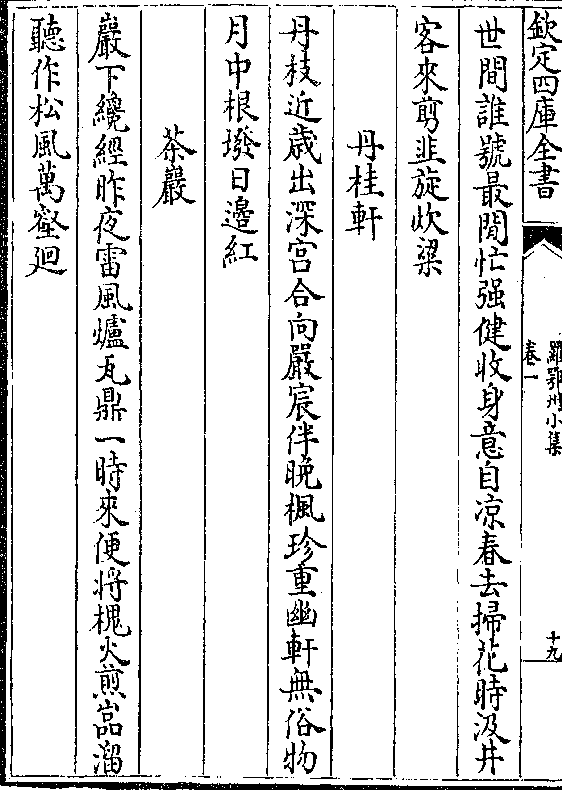 欽定四庫全書
羅鄂州小集
卷一
十九
世間誰號最閒忙强健收身意自凉春去掃花時汲井
客來剪韭旋炊粱
丹桂軒
丹枝近歲出深宫合向嚴宸伴晩楓珍重幽軒無俗物
月中根撥日邉紅
茶巖
巖下纔經昨夜雷風爐瓦鼎一時來便將槐火煎嵓溜
聽作松風萬壑迴